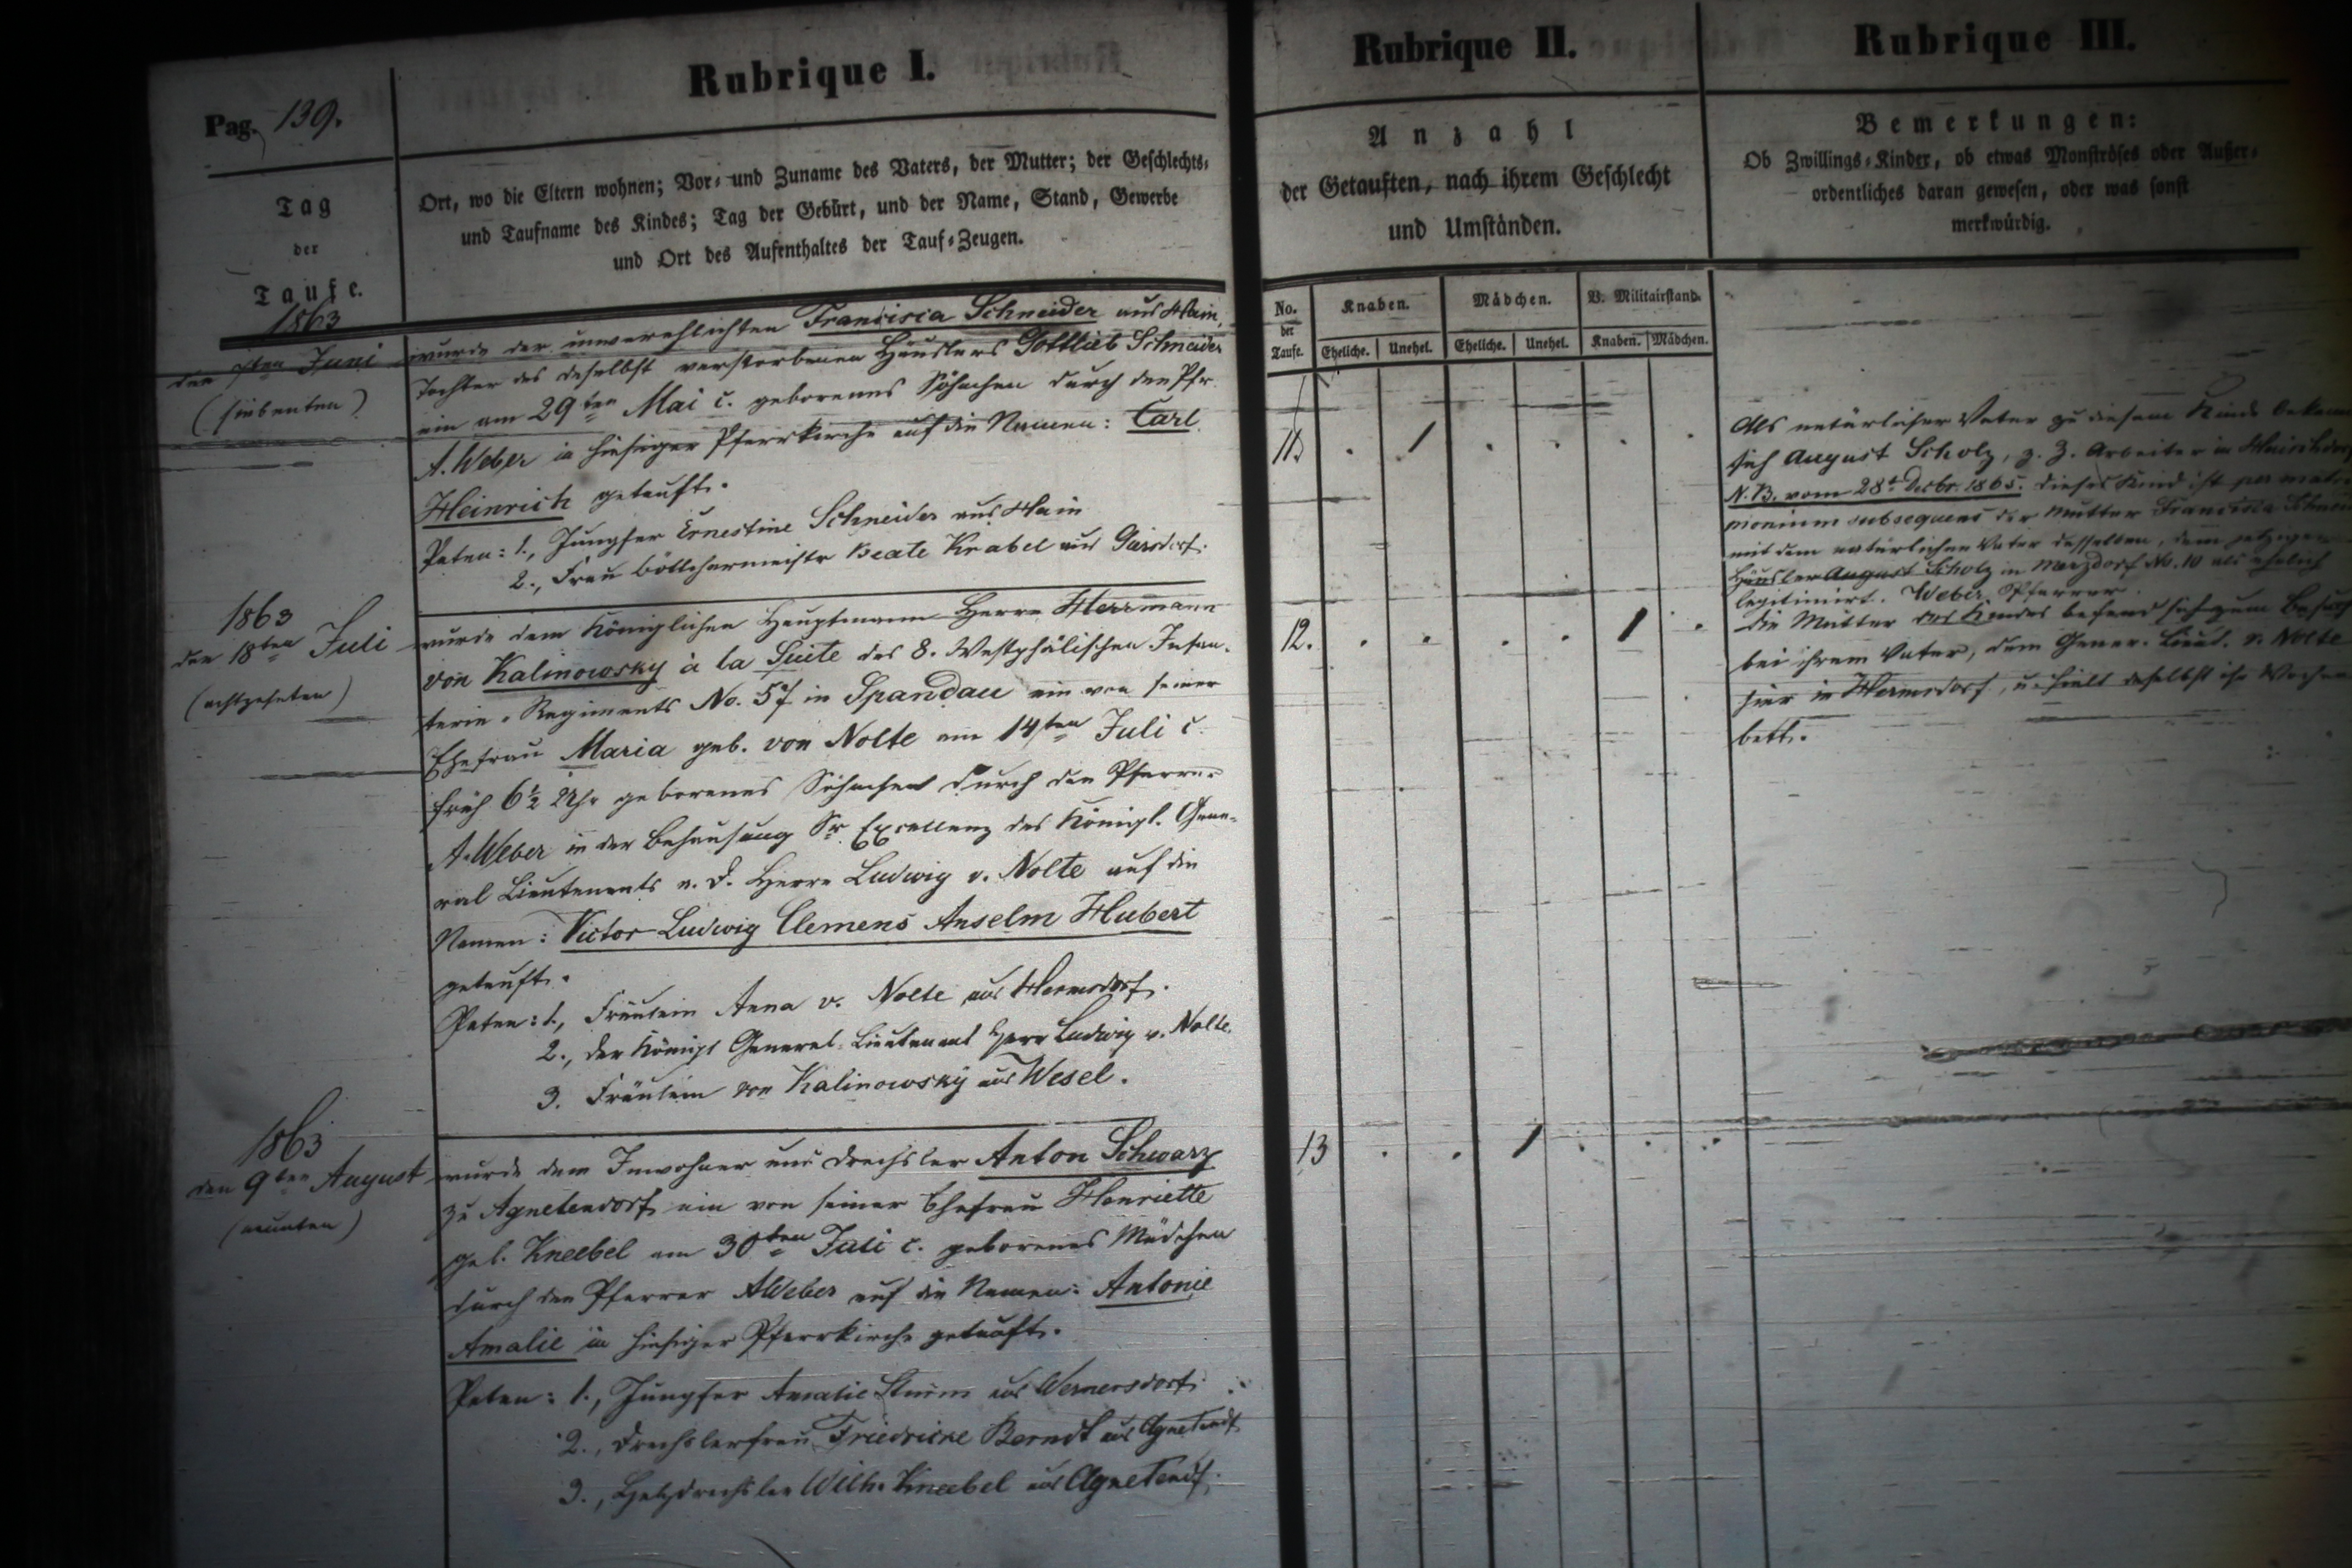 Pag. 139.
Rubrique I.
Tag
der
Taufe.
Ort, wo die Eltern wohnen; Vor- und Zuname des Vaters, der Mutter; der Geschlechts-
und Taufname des Kindes; Tag der Geburt, und der Name, Stand, Gewerbe
und Ort des Aufenthaltes der Tauf-Zeugen.
1863
den 7ten Juni
(siebenten)
wurde der unverehlichten Francisca Schneider aus Hain,
Tochter des daselbst verstorbenen Häuslers Gottlieb Schneider
ein am 29ten Mai c. geborenes Söhnchen durch den Pfr.
A. Weber in hiesiger Pfarrkirche auf die Namen: Carl
Heinrich getauft.
Paten: 1., Jungfer Ernestine Schneider aus Hain
2., Frau Böttchermeister Beate Knabel aus
1863
den 18ten Juli
(achtzehnten)
wurde dem Königlichen Hauptmann Herrn Herrmann
von Kalinowsky à la Suite des 8. Westphälischen Infan-
terie-Regiments No. 57 in Spandau ein von seiner
Ehefrau Maria geb. von Nolte am 14ten Juli c.
früh 6½ Uhr geborenes Söhnchen durch den Pfarrer
A. Weber in der Behausung Sr. Excellenz des Königl. Gene-
ral Lieutenants a. D. Herrn Ludwig v. Nolte auf die
Namen: Victor Ludwig Clemens Anselm Hubert
getauft.
Paten: 1., Fräulein Anna v. Nolte aus Hermsdorf.
2., der Königl General-Lieutenant Herr Ludwig v. Nolte.
3. Fräulein von Kalinowsky aus Wesel.
1863
den 9ten August
(neunten)
wurde dem Inwohner und Drechsler Anton Schwarz
zu Agnetendorf ein von seiner Ehefrau Henriette
geb. Kneebel am 30ten Juli c. geborenes Mädchen
durch den Pfarrer AWeber auf die Namen: Antonie
Amalie in hiesiger Pfarrkirche getauft.
Paten: 1., Jungfer Amalie aus Wernersdorf.
2., Drechslerfrau Friedricke Berndt aus Agnetendf.
3., Holzdrechsler Wilh. Kneebel aus Agnetendf.
Rubrique II.
Anzahl
der Getauften, nach ihrem Geschlecht
und Umständen.
No. der Taufe.
Knaben. Mädchen. V. Militairstand.
Eheliche. Unehel. Eheliche. Unehel. Knaben. Mädchen.
11. . 1 . . . .
12. . . . . 1 .
13 . . 1 . . .
Rubrique III.
Bemerkungen:
Ob Zwillings-Kinder, ob etwas Monströses oder Außer-
ordentliches daran gewesen, oder was sonst
merkwürdig.
Als natürlicher Vater zu diesem Kinde
sich August Scholz, z. Z. Arbeiter in
N.B. vom 28t. Decbr. 1865. dieses Kind ist per matri-
monium subsequens der Mutter Francisca
mit dem natürlichen Vater desselben, dem jetzigen
Häusler August Scholz in Merzdorf No. 10 als ehelich
legitimirt. Weber, Pfarrer.
Die Mutter des Kindes befand sich zum Besuch
bei ihrem Vater, dem Gener. Lieut. v. Nolte
hier in Hermsdorf, u. hielt daselbst ihr Wochen
bett.